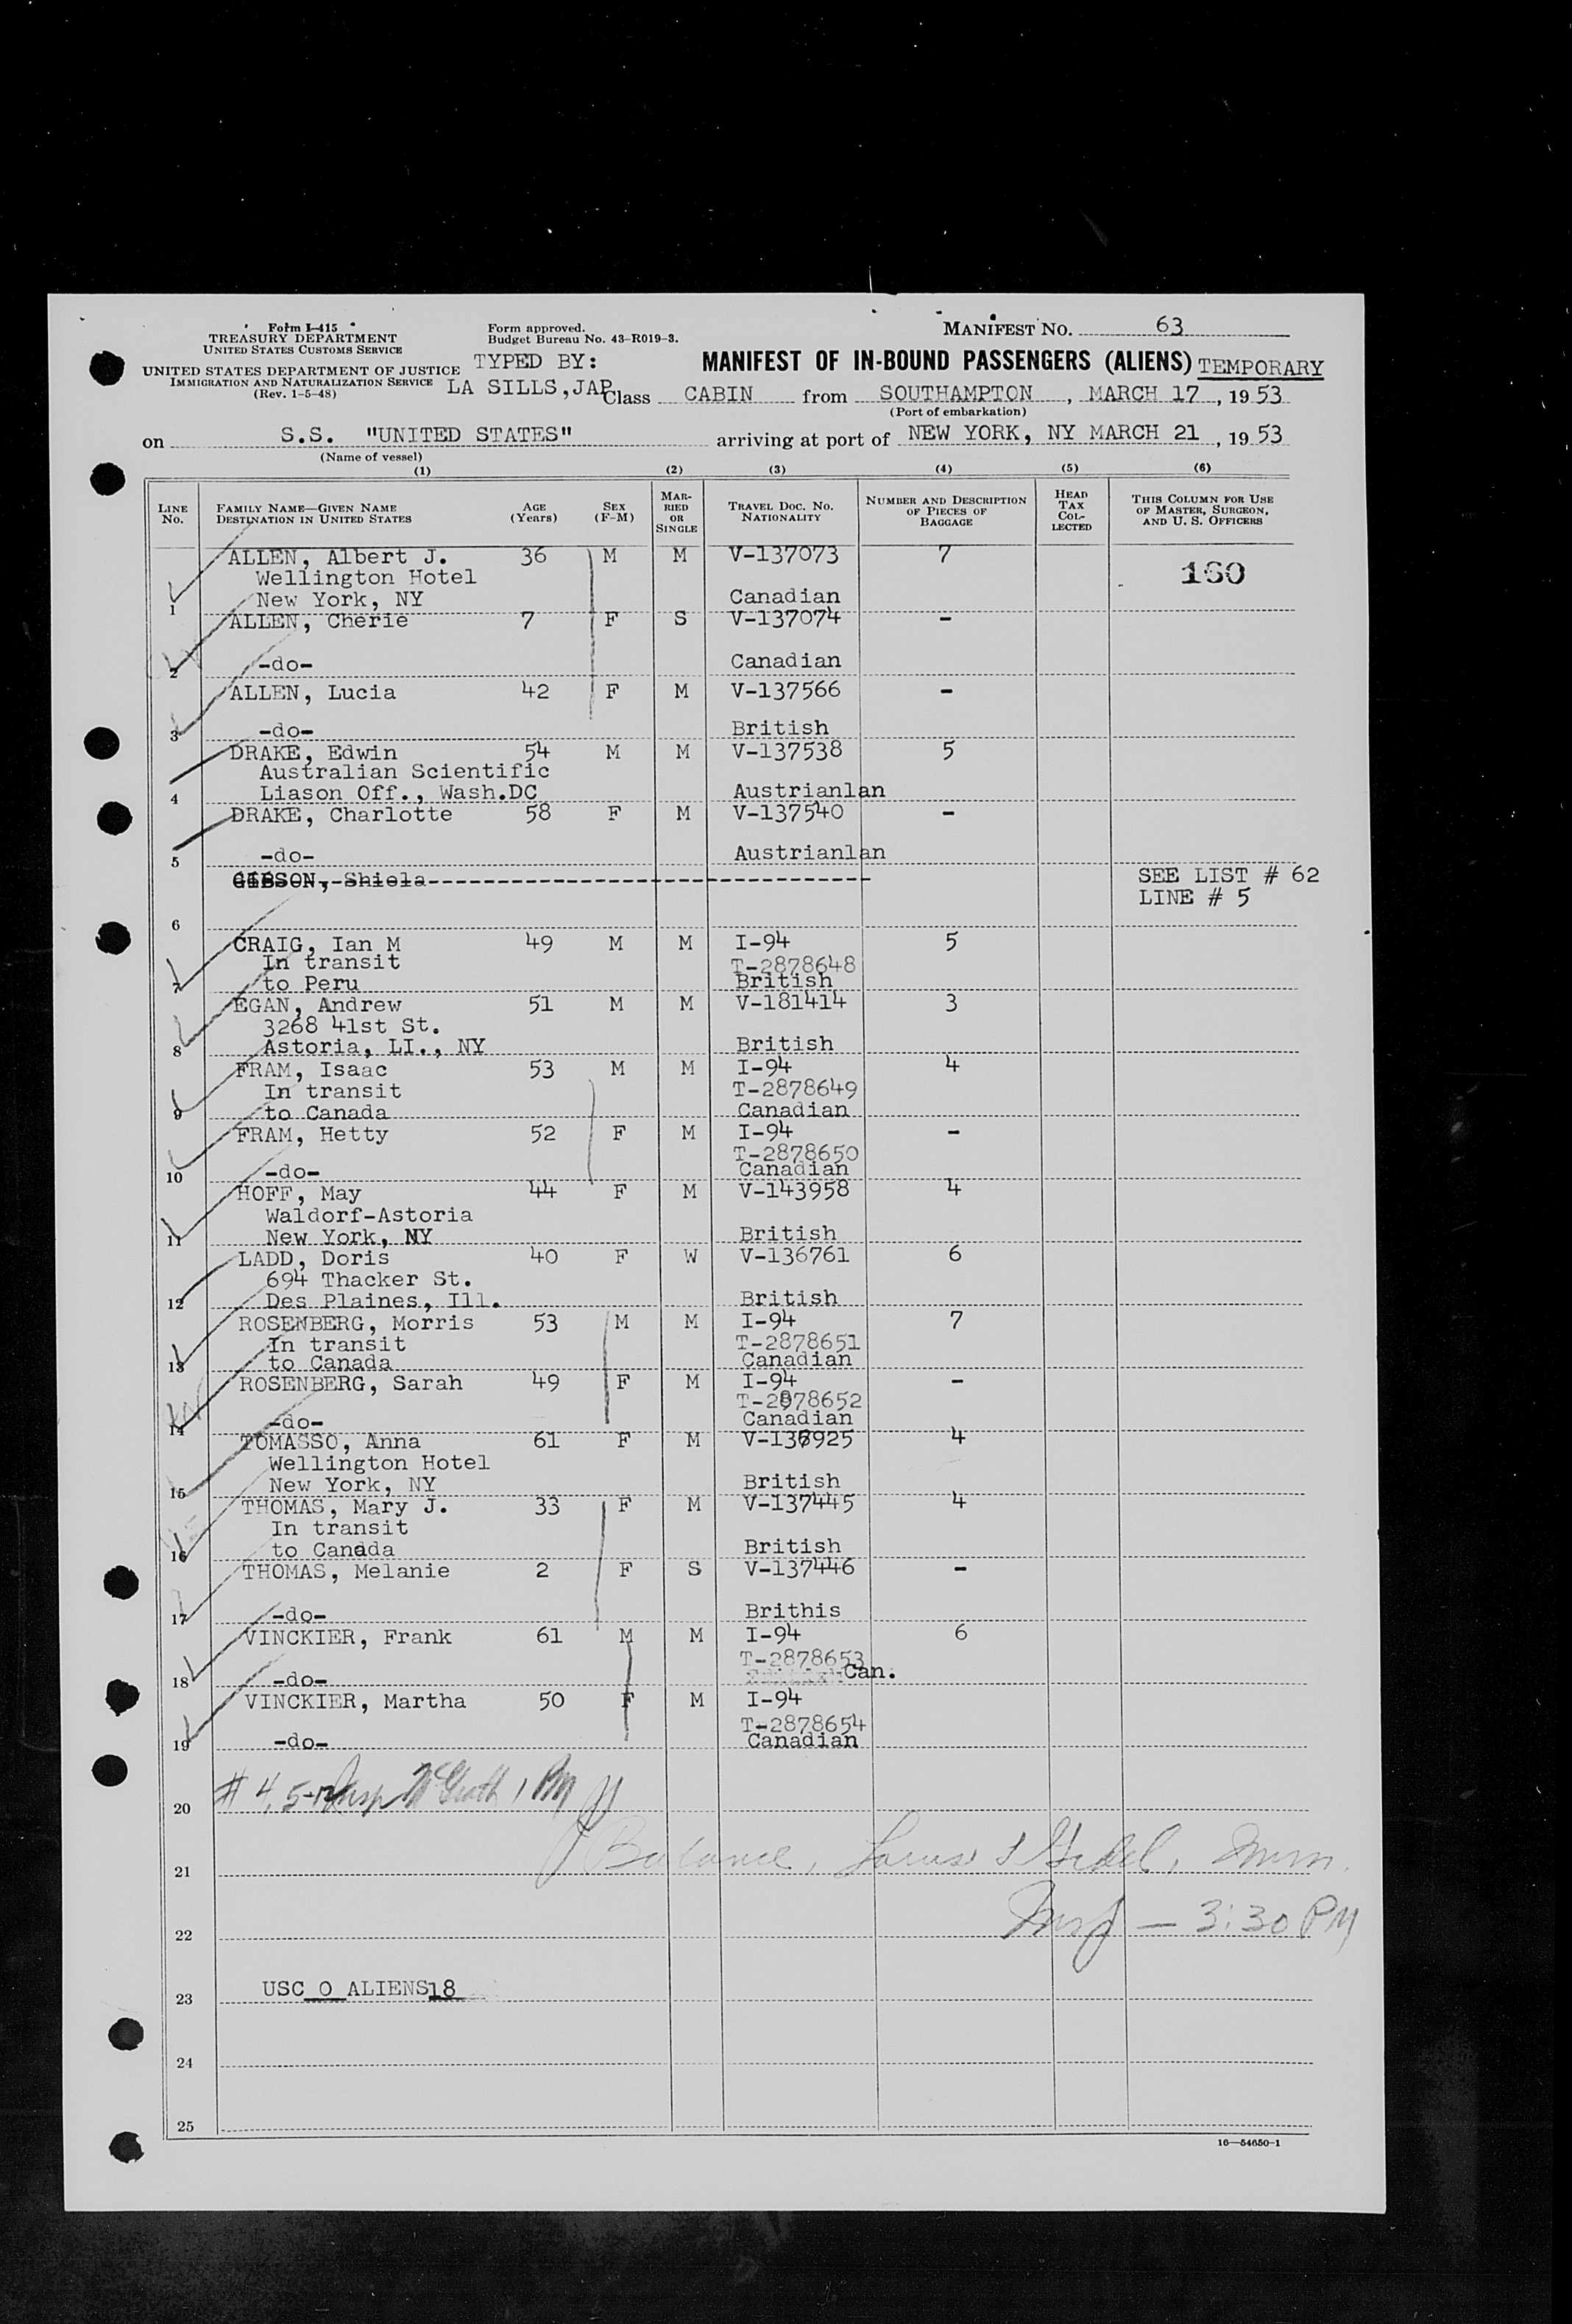 Form I-415
TREASURY DEPARTMENT
UNITED STATES CUSTOMS SERVICE
UNITED STATES DEPARTMENT OF JUSTICE
IMMIGRATION AND NATURALIZATION SERVICE
(Rev. 1-5-48)
Form approved.
Budget Bureau No. 43-R019-3.
TYPED BY:
LA SILLS, JAP
MANIFEST NO. 63
MANIFEST OF IN-BOUND PASSENGERS (ALIENS) TEMPORARY
Class CABIN from SOUTHAMPTON, MARCH 17, 1953
(Port of embarkation)
on S.S. "UNITED STATES" arriving at port of NEW YORK, NY MARCH 21, 1953
(Name of vessel)
(1) (2) (3) (4) (5) (6)
LINE No. FAMILY NAME—GIVEN NAME DESTINATION IN UNITED STATES AGE (Years) SEX (F-M) MARRIED OR SINGLE TRAVEL DOC. NO. NATIONALITY NUMBER AND DESCRIPTION OF PIECES OF BAGGAGE HEAD TAX COLLECTED THIS COLUMN FOR USE OF MASTER, SURGEON, AND U. S. OFFICERS
ALLEN, Albert J. 36 M M V-137073 7
Wellington Hotel 160
1 New York, NY Canadian
ALLEN, Cherie 7 F S V-137074 -
2 -do- Canadian
ALLEN, Lucia 42 F M V-137566 -
3 -do- British
DRAKE, Edwin 54 M M V-137538 5
Australian Scientific
4 Liason Off., Wash.DC Austrianlan
DRAKE, Charlotte 58 F M V-137540 -
5 -do- Austrianlan
GIBSON, Shiela SEE LIST # 62
LINE # 5
6
CRAIG, Ian M 49 M M I-94 5
In transit T-2878648
7 to Peru British
EGAN, Andrew 51 M M V-181414 3
3268 41st St.
8 Astoria, LI., NY British
FRAM, Isaac 53 M M I-94 4
In transit T-2878649
9 to Canada Canadian
FRAM, Hetty 52 F M I-94 -
T-2878650
10 -do- Canadian
HOFF, May 44 F M V-143958 4
Waldorf-Astoria
11 New York, NY British
LADD, Doris 40 F W V-136761 6
694 Thacker St.
12 Des Plaines, Ill. British
ROSENBERG, Morris 53 M M I-94 7
In transit T-2878651
13 to Canada Canadian
ROSENBERG, Sarah 49 F M I-94 -
T-2878652
14 -do- Canadian
TOMASSO, Anna 61 F M 4
Wellington Hotel
15 New York, NY British
THOMAS, Mary J. 33 F M V-137445 4
In transit
16 to Canada British
THOMAS, Melanie 2 F S V-137446 -
17 -do- Brithis
VINCKIER, Frank 61 M M I-94 6
T-2878653
18 -do- Can.
VINCKIER, Martha 50 F M I-94
T-2878654
19 -do- Canadian
# 4, 5 - Insp McGrath 1 PM
20
Balance,
21
3:30 PM
22
USC 0 ALIENS 18
23
24
25
16—54650-1